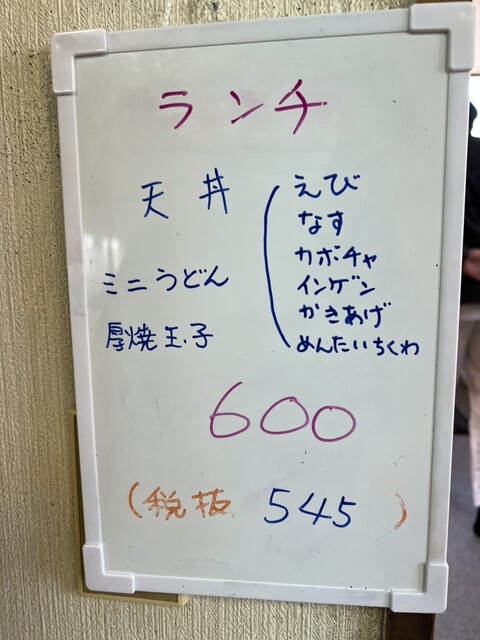 ランチ
天丼
えび
なす
カボチャ
インゲン
かきあげ
めんたいちくわ
ミニうどん
厚焼玉子
600
(税抜 545)